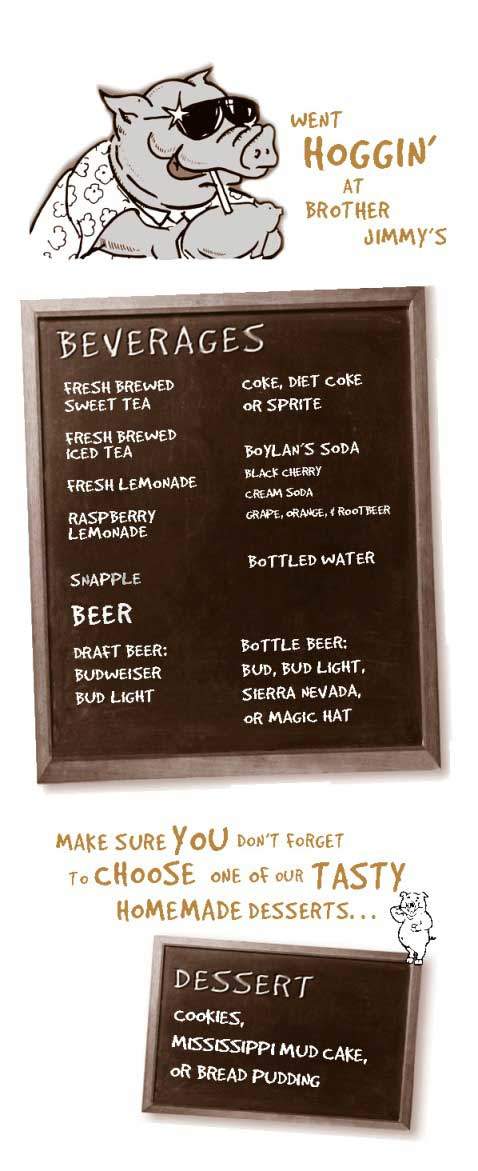 WENT
HOGGIN'
AT
BROTHER
JIMMY'S
BEVERAGES
FRESH BREWED
SWEET TEA
FRESH BREWED
ICED TEA
FRESH LEMONADE
RASPBERRY
LEMONADE
SNAPPLE
COKE, DIET COKE
OR SPRITE
BOYLAN'S SODA
BLACK CHERRY
CREAM SODA
GRAPE, ORANGE, & ROOTBEER
BOTTLED WATER
BEER
DRAFT BEER:
BUDWEISER
BUD LIGHT
BOTTLE BEER:
BUD, BUD LIGHT,
SIERRA NEVADA,
OR MAGIC HAT
MAKE SURE YOU DON'T FORGET
TO CHOOSE ONE OF OUR TASTY
HOMEMADE DESSERTS...
DESSERT
COOKIES,
MISSISSIPPI MUD CAKE,
OR BREAD PUDDING